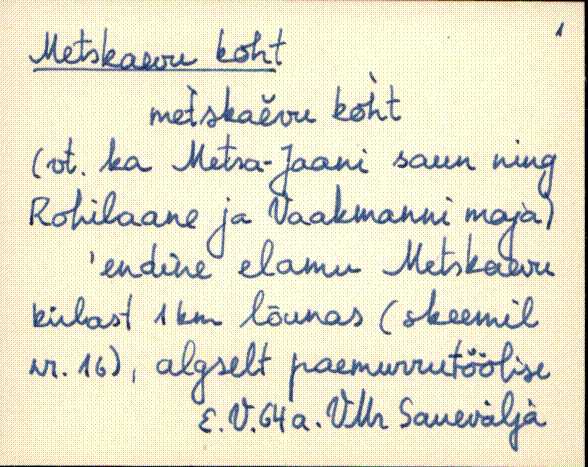 1
Metskaevu koht
met̀skaĕvu koh̀t
(vt. ka Metsa-Jaani saun ning
Rohilaane ja Vaakmanni maja)
'endine elamu Metskaevu
külast 1 km lõunas (skeemil
nr. 16), algselt paemurrutöölise
E. V. 64 a. VMr Sauevälja